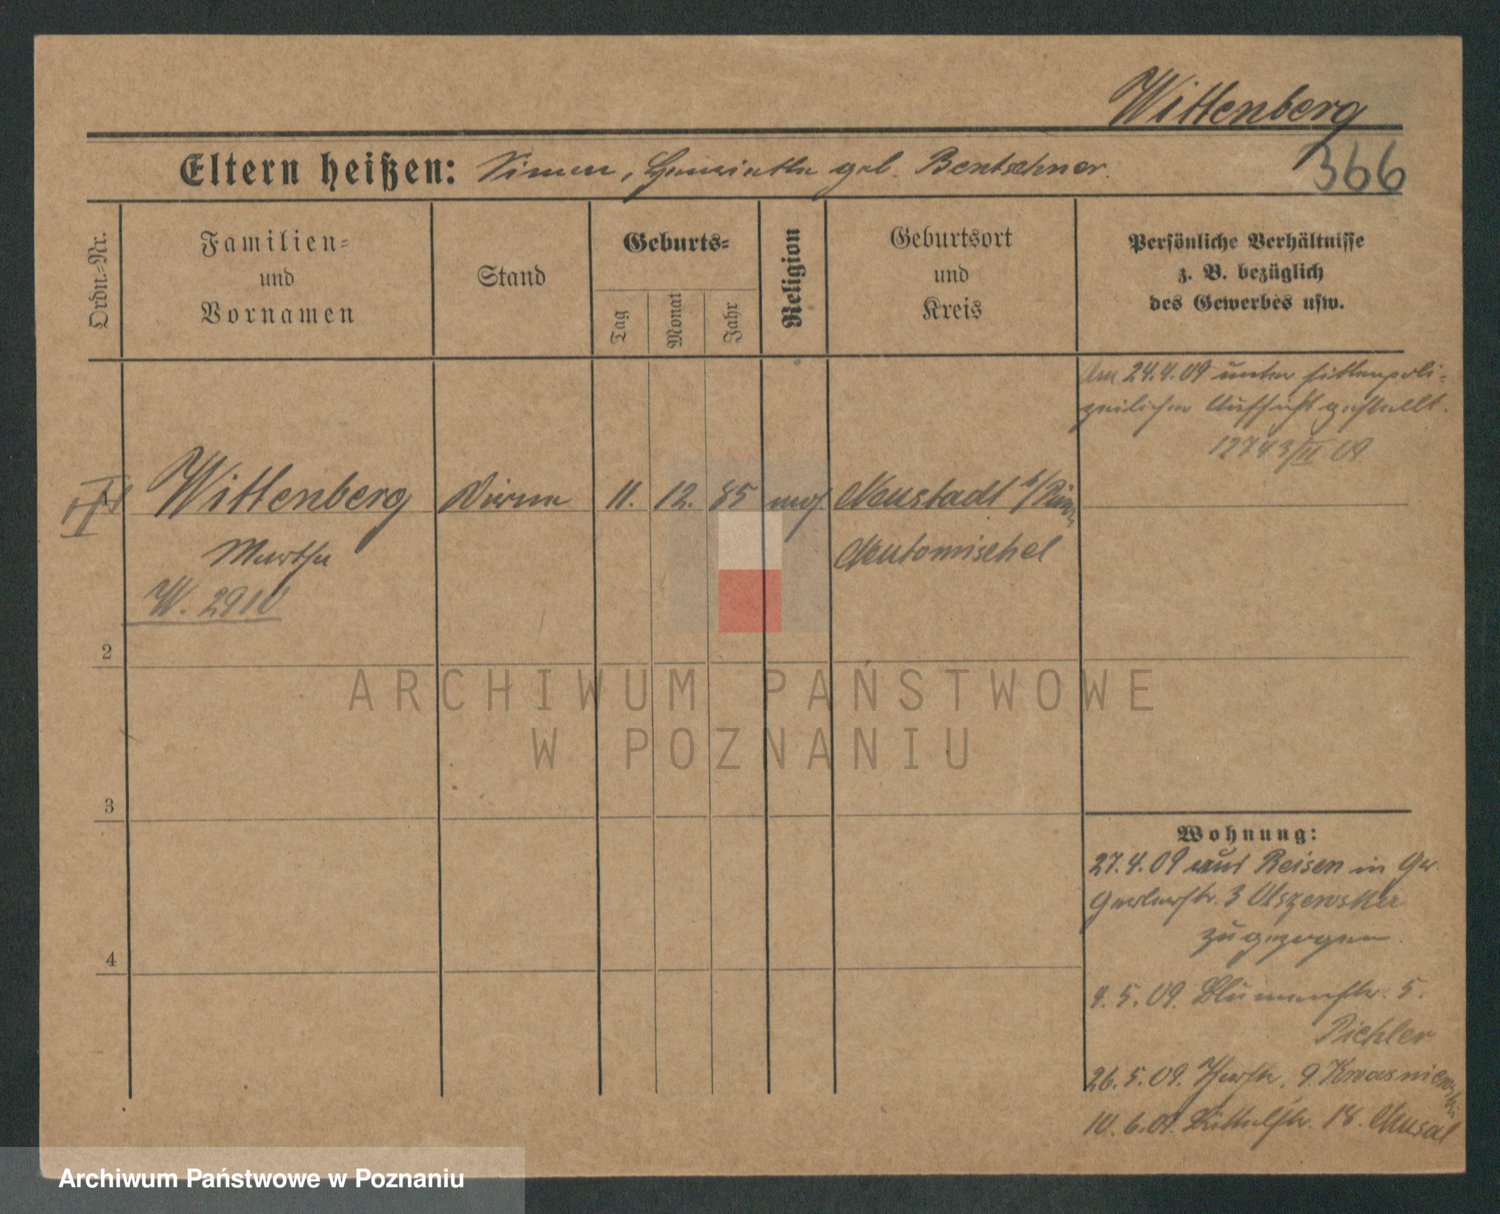 Wittenberg
366
Eltern heißen: Simon, Henriette geb. Bentschner.
Ordn.-Nr.
Familien-
und
Vornamen
Stand
Geburts-
Tag
Monat
Jahr
Religion
Geburtsort
und
Kreis
Persönliche Verhältnisse
z. B. bezüglich
des Gewerbes usw.
Am 24.4.09 unter sittenpoli-
zeilicher Aufsicht gestellt.
12743/II 09
Wittenberg
Dirne
11. 12. 85
mos.
Neustadt b/Pinne
Martha
Neutomischel
W. 2910
2
3
4
Wohnung:
27.4.09 aus Reisen in
3 Olszewska
zugezogen.
4.5.09. Blumenstr. 5.
Pichler
26.5.09. 9 Kwasniewski
10.6.09. 18. Musal
ARCHIWUM PAŃSTWOWE
W POZNANIU
Archiwum Państwowe w Poznaniu